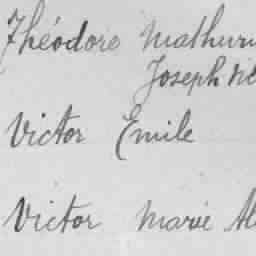 Théodore Mathurin
Joseph
Victor Emile
Victor Marie